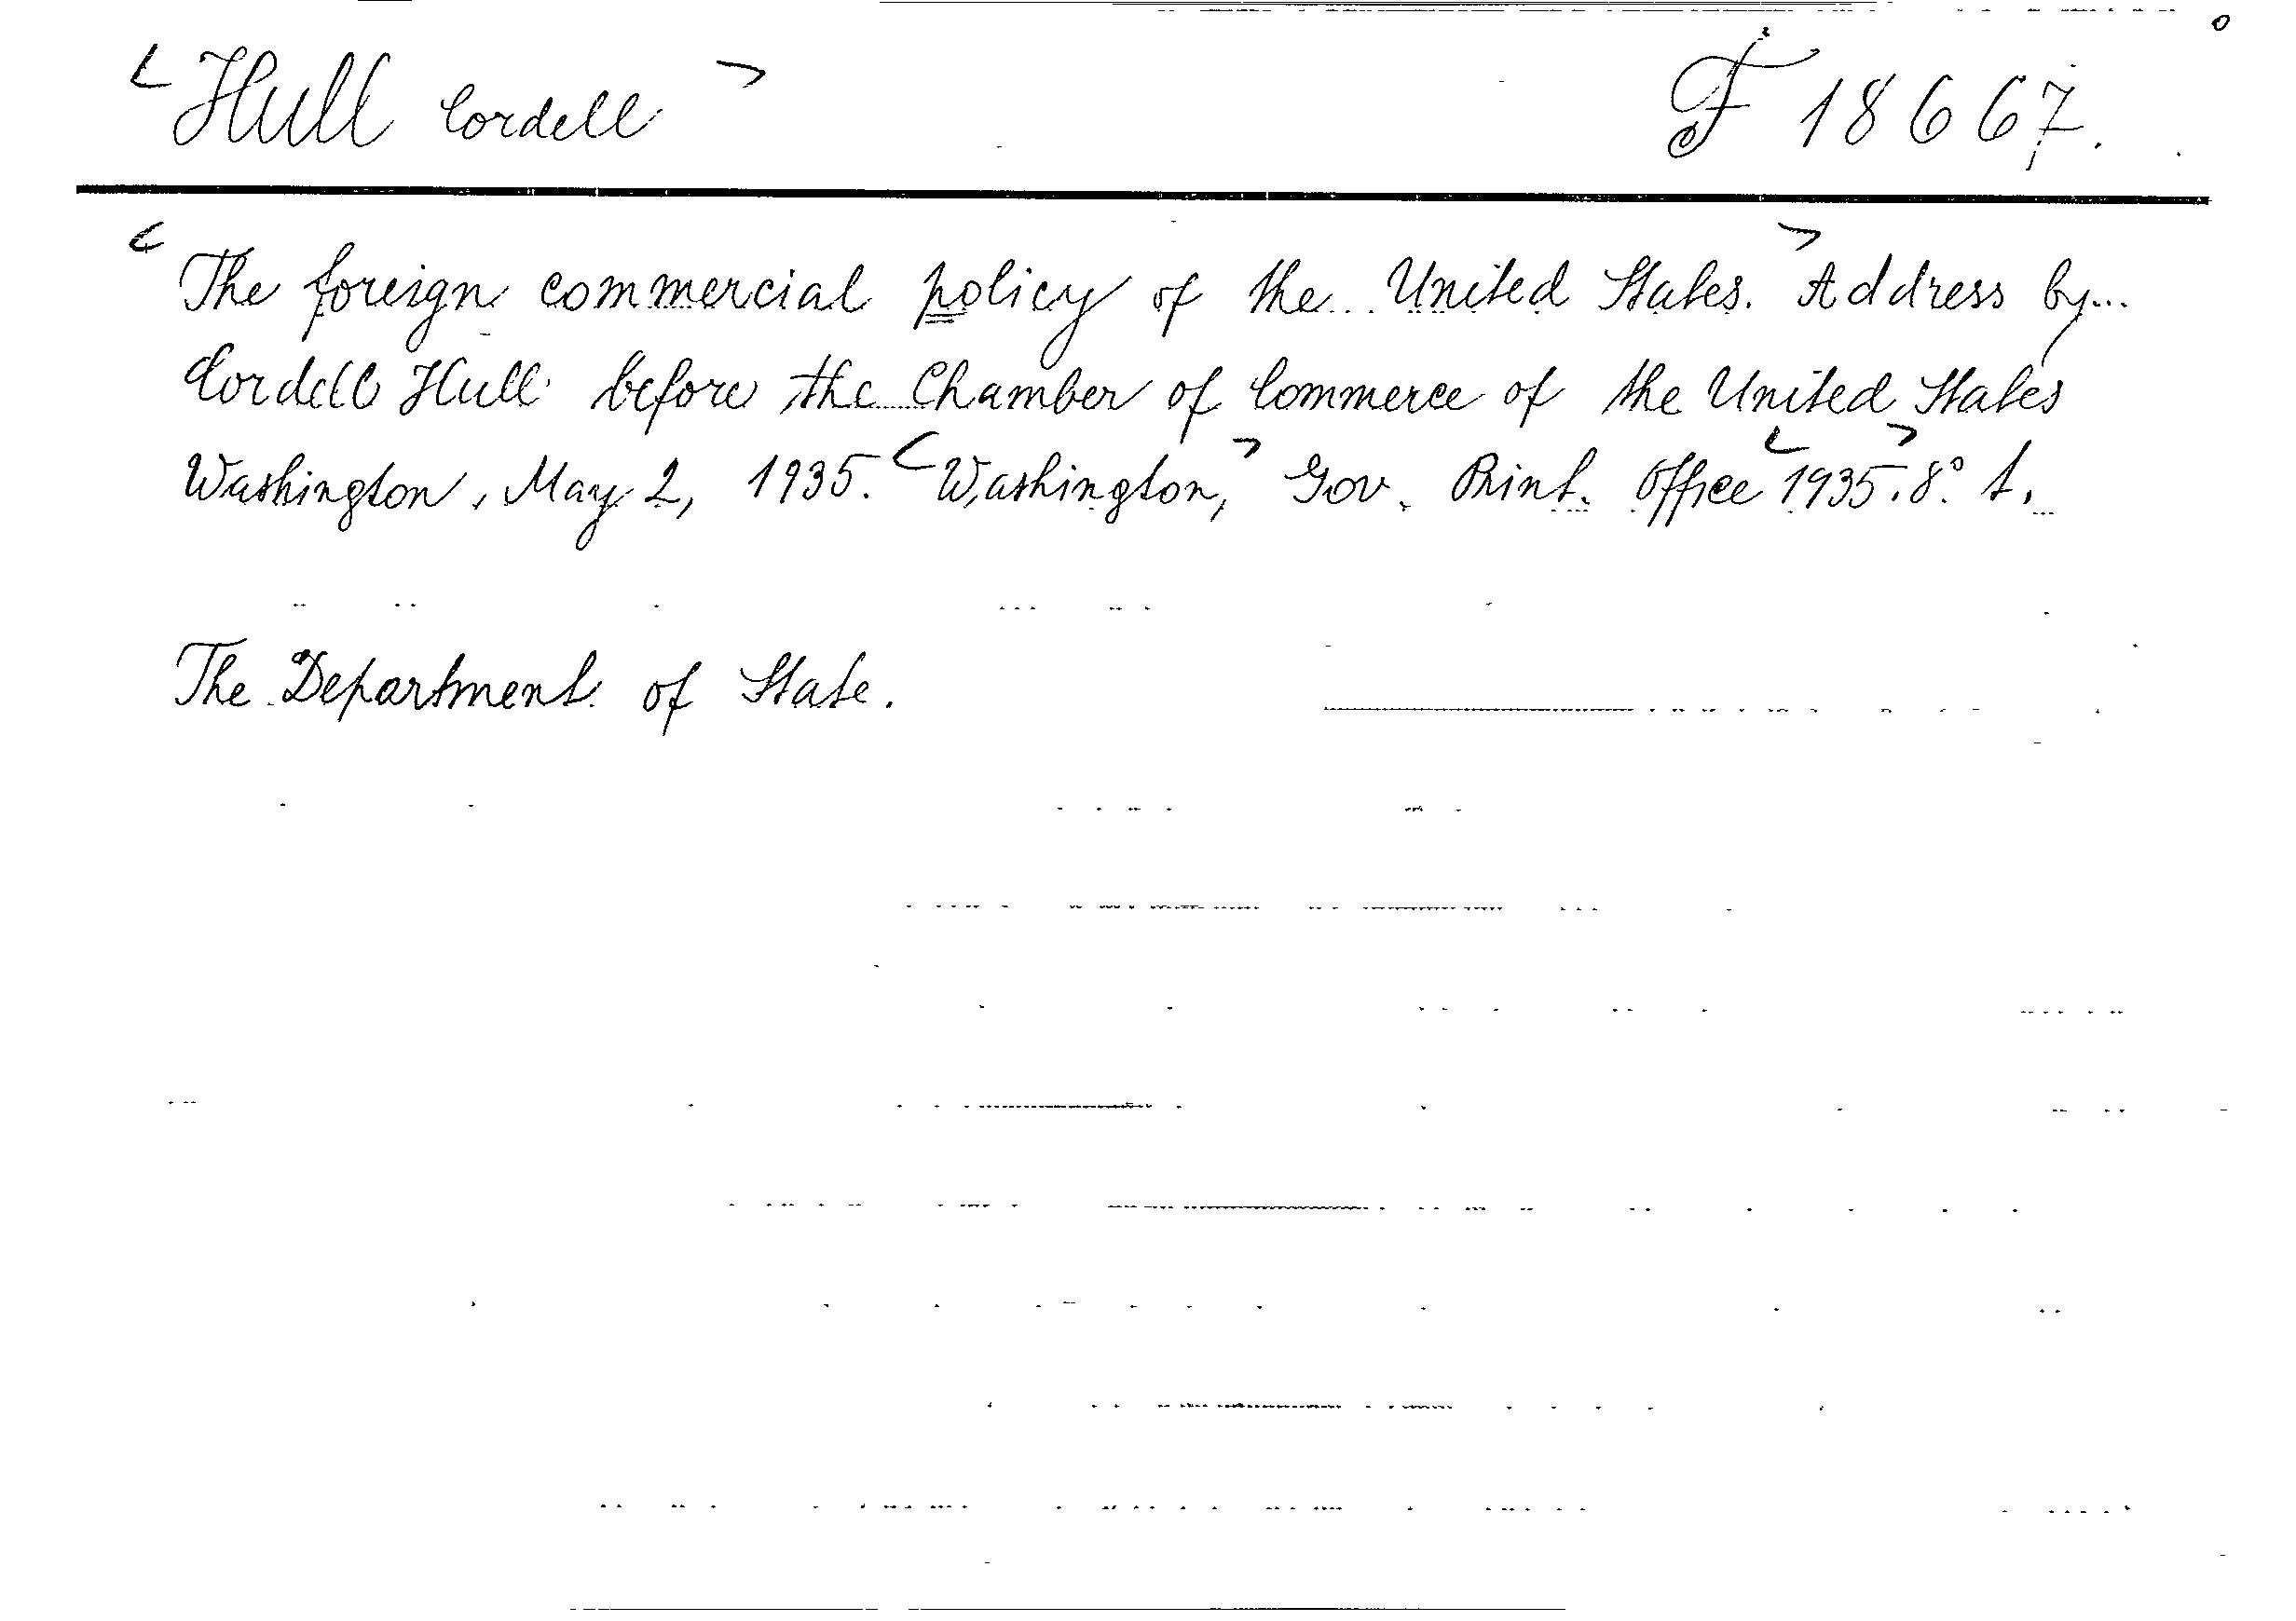 < Hull Cordell > F 18667.
< The foreign commercial policy of the United States. > Address by...
Cordell Hull before the Chamber of Commerce of the United States
Washington, May 2, 1935. < Washington, > Gov. Print. Office < 1935. > 8° t.
The Department of State.